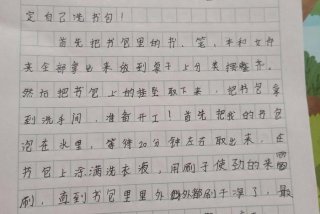 定自己洗书包！
首先把书包里的书、笔、本和文件
夹全部拿出来放到桌子上分类摆整齐。
然后把书包上的挂坠取下来，把书包拿
到洗手间，准备开工！首先把我的书包
泡在水里，等待20分钟左右取出来，在
书包上涂满洗衣液，用刷子使劲的来
刷，直到书包里里外外都刷干净了，最